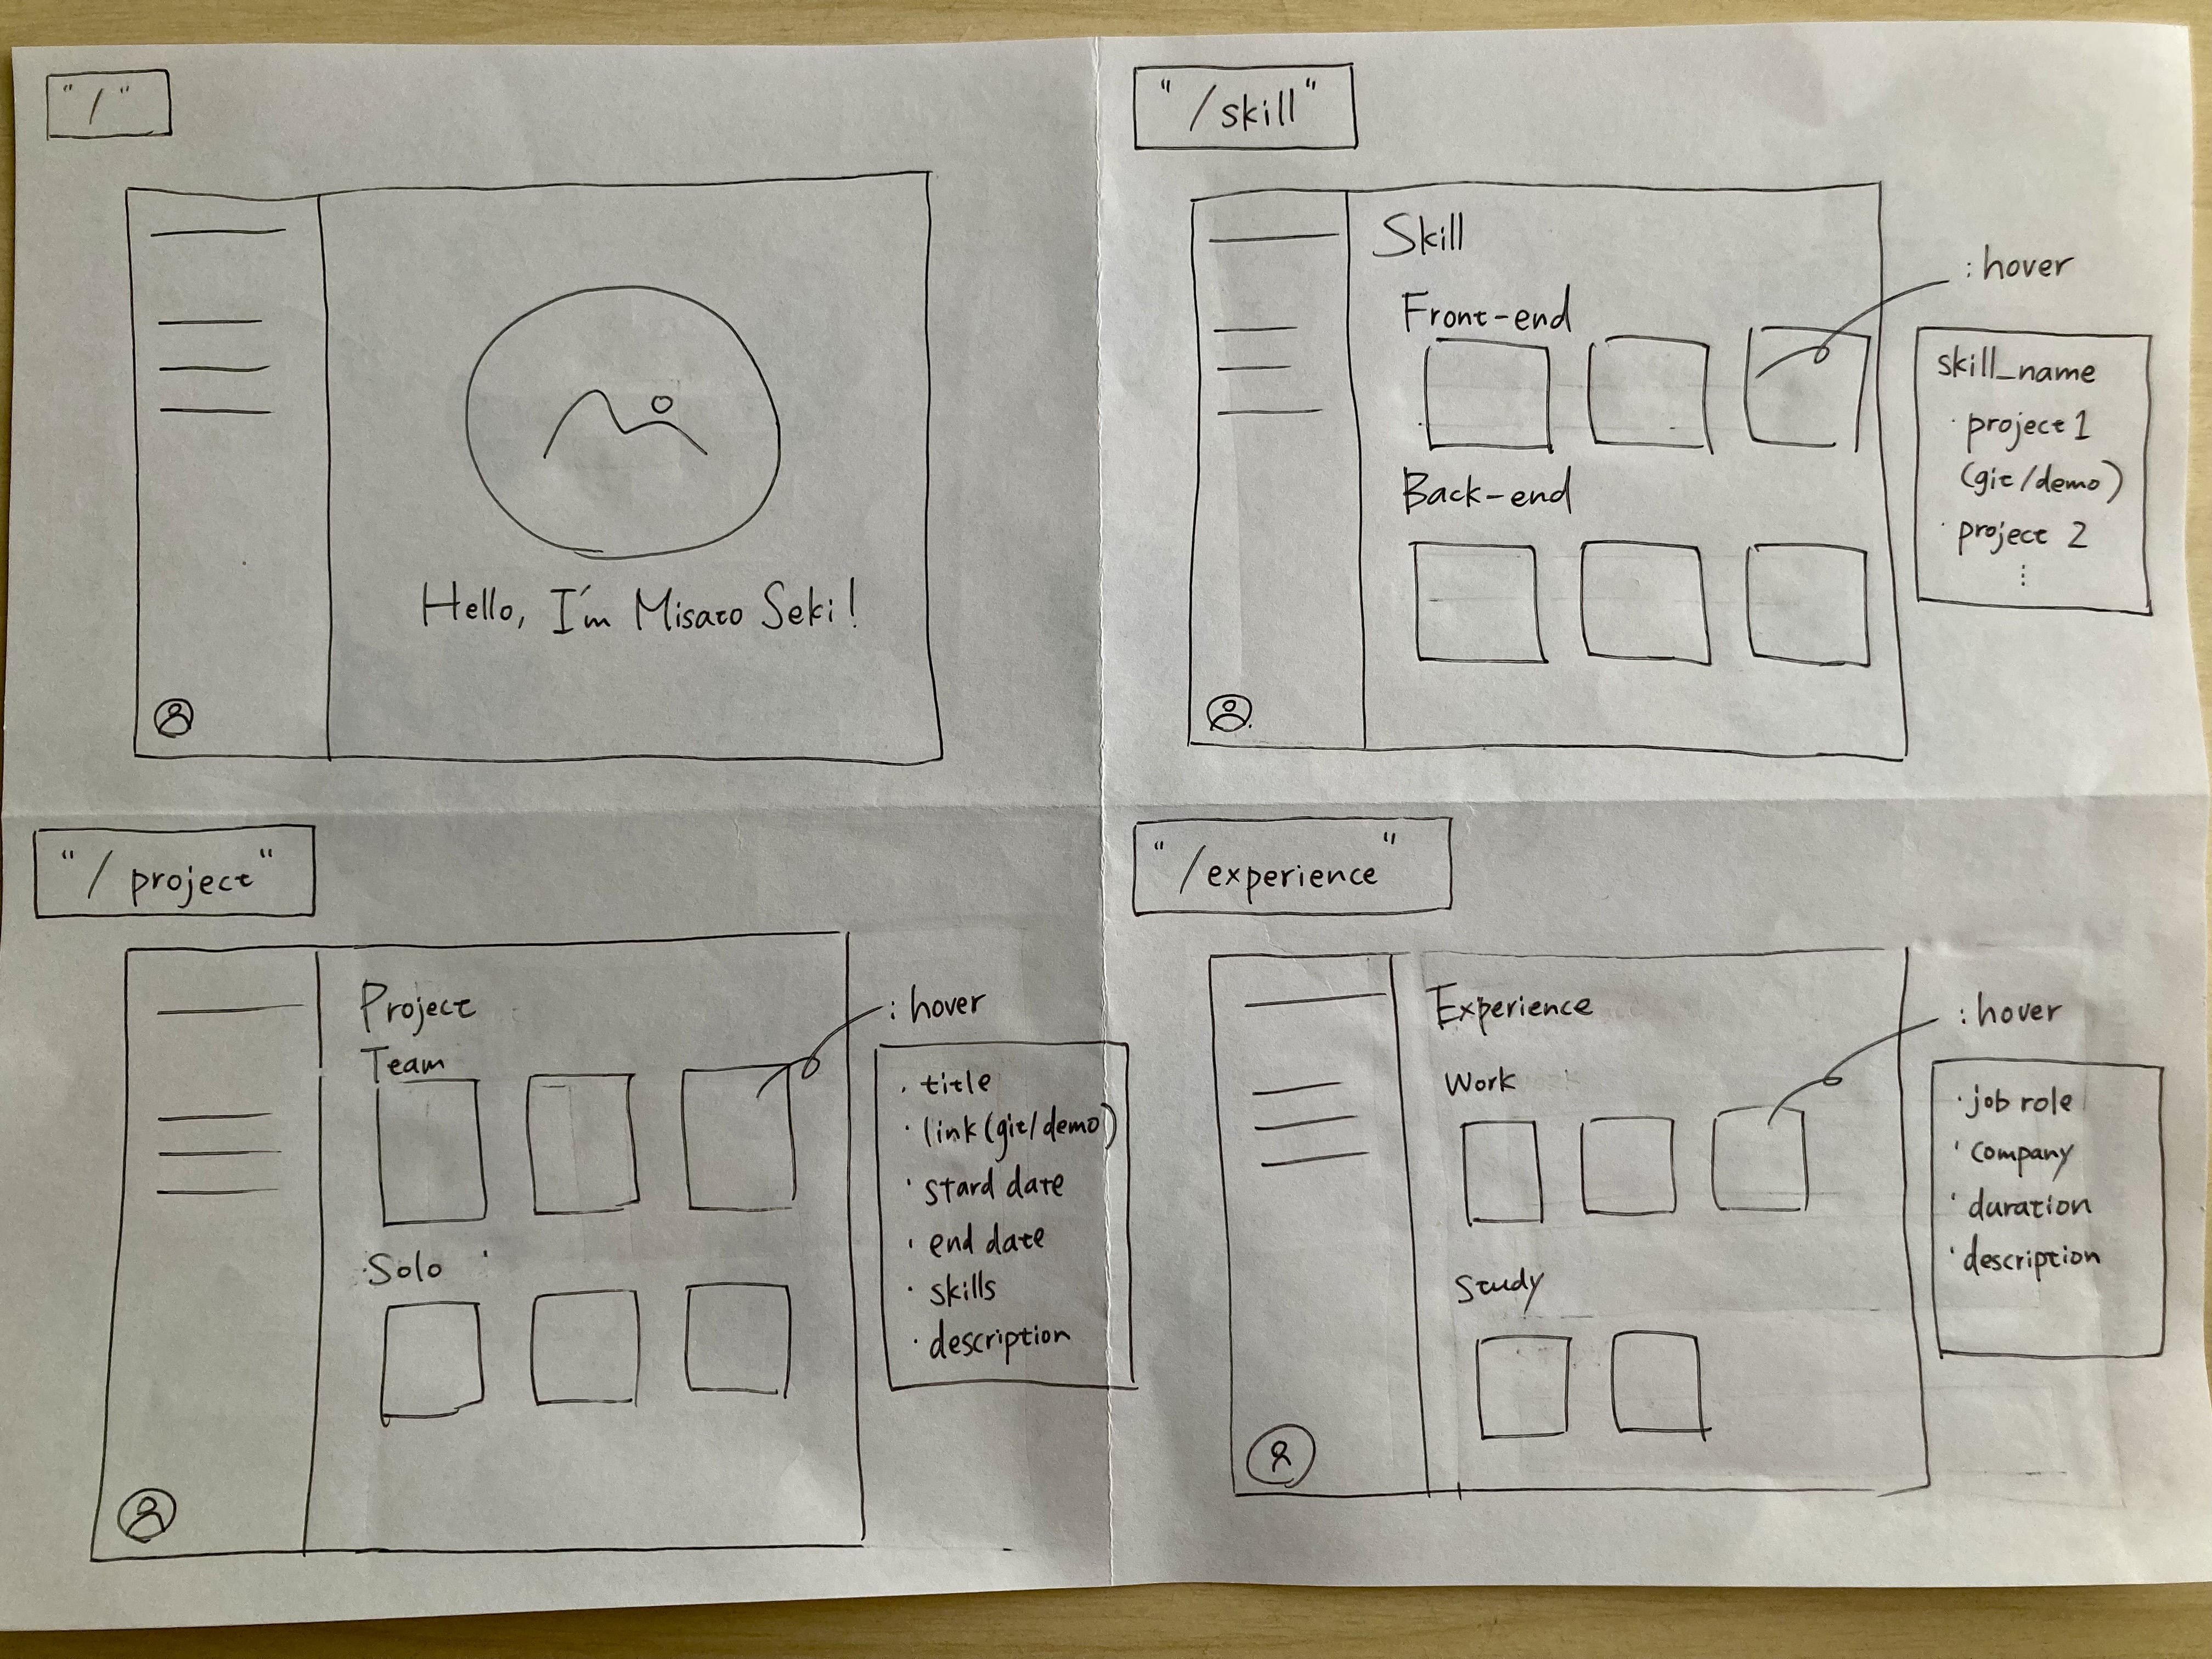 "/"
Hello, I'm Misato Seki!
"/skill"
Skill
Front-end
Back-end
:hover
skill_name
· project 1
(git/demo)
· project 2
⋮
"/project"
Project
Team
Solo
:hover
· title
· link (git/demo)
· stard date
· end date
· skills
· description
"/experience"
Experience
Work
Study
:hover
· job role
· company
· duration
· description